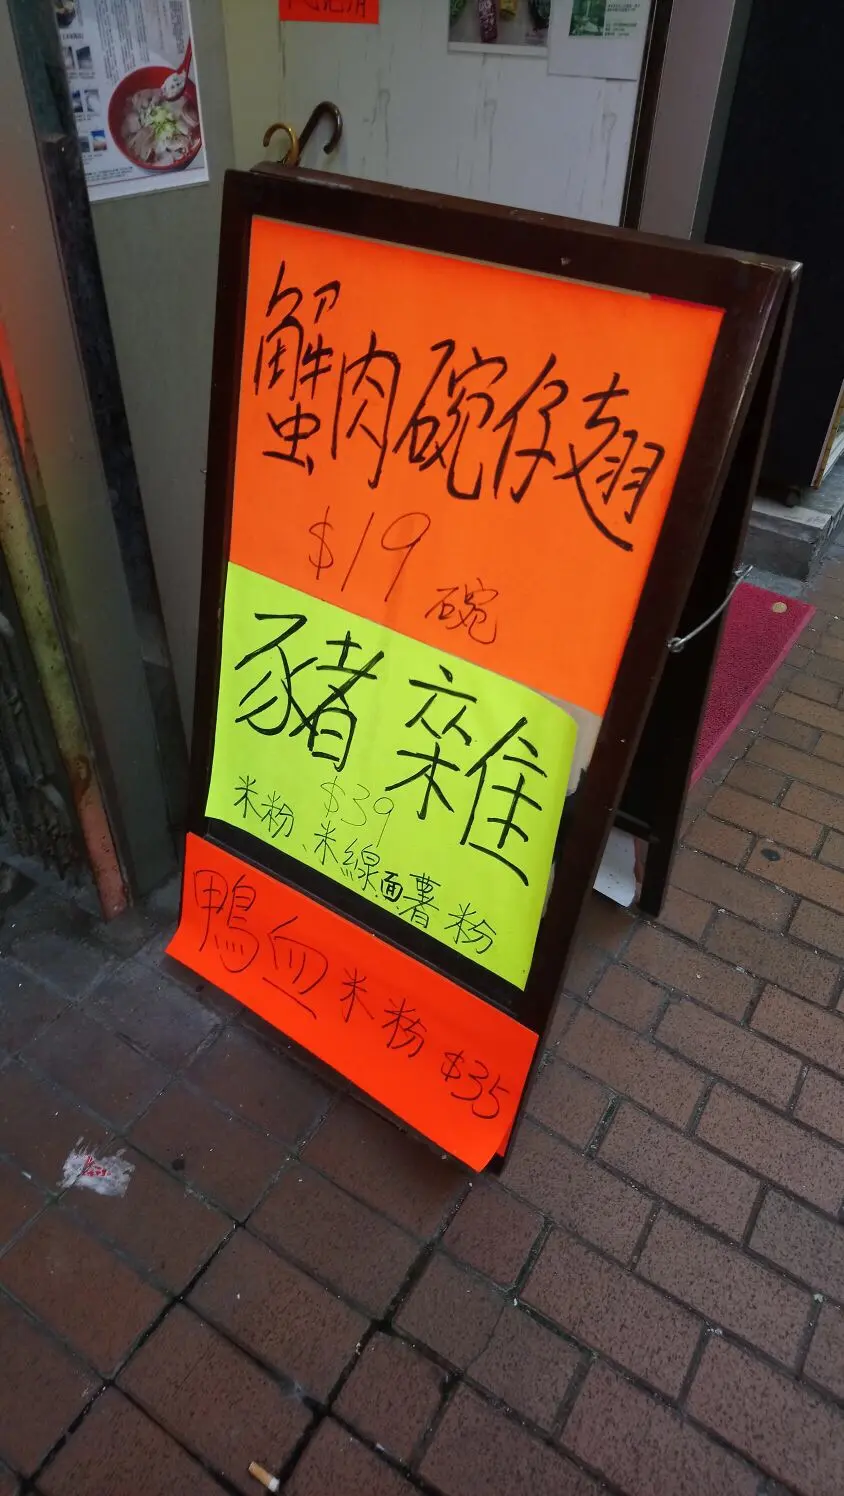 蟹肉碗仔翅
$19 碗
豬雜
$39
米粉、米線面薯粉
鴨血米粉 $35